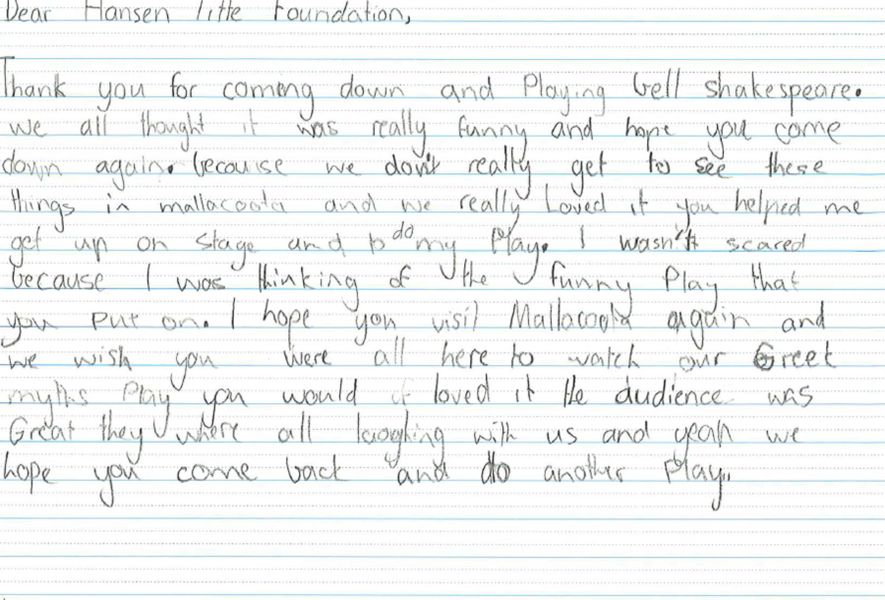 Dear Hansen little Foundation,
Thank you for comeng down and Playing bell shakespeare.
we all thought it was really funny and hope you come
down again. becouise we don't really get to see these
things in mallacoota and we really Loved it you helped me
get up on stage and to do my Play. I wasn't scared
because I was thinking of the funny Play that
you put on. I hope you visit Mallacoota again and
we wish you were all here to watch our Greek
myths Play you would if loved it the audience was
Great they where all laughing with us and yeah we
hope you come back and do another Play.